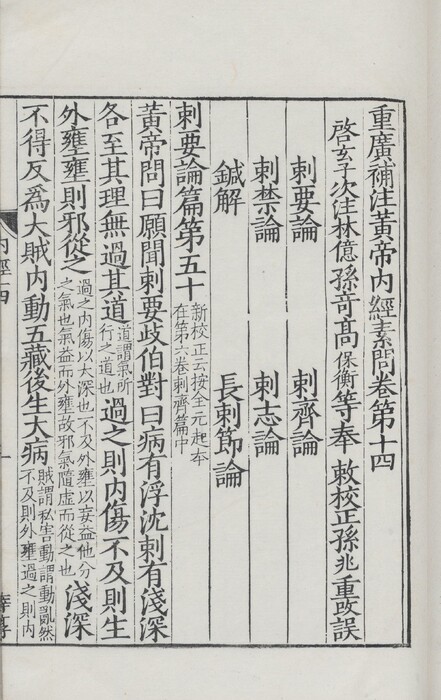 重廣補注黃帝內經素問卷第十四
啓玄子次注林億孫竒髙保衡等奉敕校正孫兆重攺誤
刺要論 刺齊論
刺禁論 刺志論
鍼解 長刺節論
刺要論篇第五十 新校正云按全元起本在第六卷刺齊篇中
黃帝問曰願聞刺要歧伯對曰病有浮沈刺有淺深
各至其理無過其道 道謂氣所行之道也 過之則內傷不及則生
外壅壅則邪從之 過之內傷以太深也不及外壅以妄益他分之氣也氣益而外壅故邪氣隨虛而從之也 淺深
不得反爲大賊內動五藏後生大病 賊謂私害動謂動亂然不及則外壅過之則內
內經十四